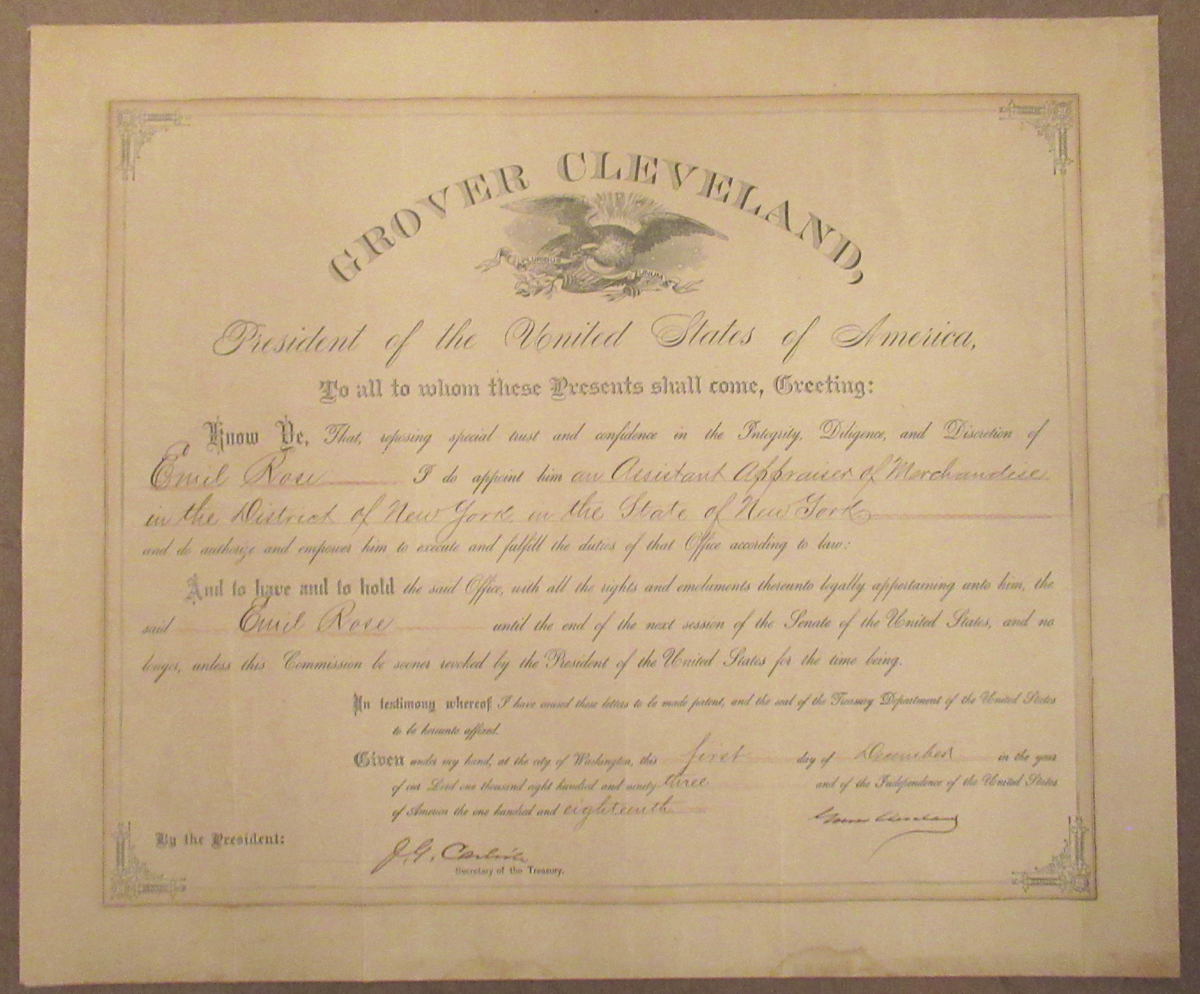 GROVER CLEVELAND,
PLURIBUS UNUM
President of the United States of America,
To all to whom these Presents shall come, Greeting:
Know Ye, That, reposing special trust and confidence in the Integrity, Diligence, and Discretion of
Emil Rose I do appoint him an Assistant Appraiser of Merchandise
in the District of New York, in the State of New York
and do authorize and empower him to execute and fulfill the duties of that Office according to law:
And to have and to hold the said Office, with all the rights and emoluments thereunto legally appertaining unto him, the
said Emil Rose until the end of the next session of the Senate of the United States, and no
longer, unless this Commission be sooner revoked by the President of the United States for the time being.
In testimony whereof I have caused these letters to be made patent, and the seal of the Treasury Department of the United States
to be hereunto affixed.
Given under my hand, at the city of Washington, this first day of December in the year
of our Lord one thousand eight hundred and ninety three and of the Independence of the United States
of America the one hundred and eighteenth
Grover Cleveland
By the President:
J. G. Carlisle
Secretary of the Treasury.